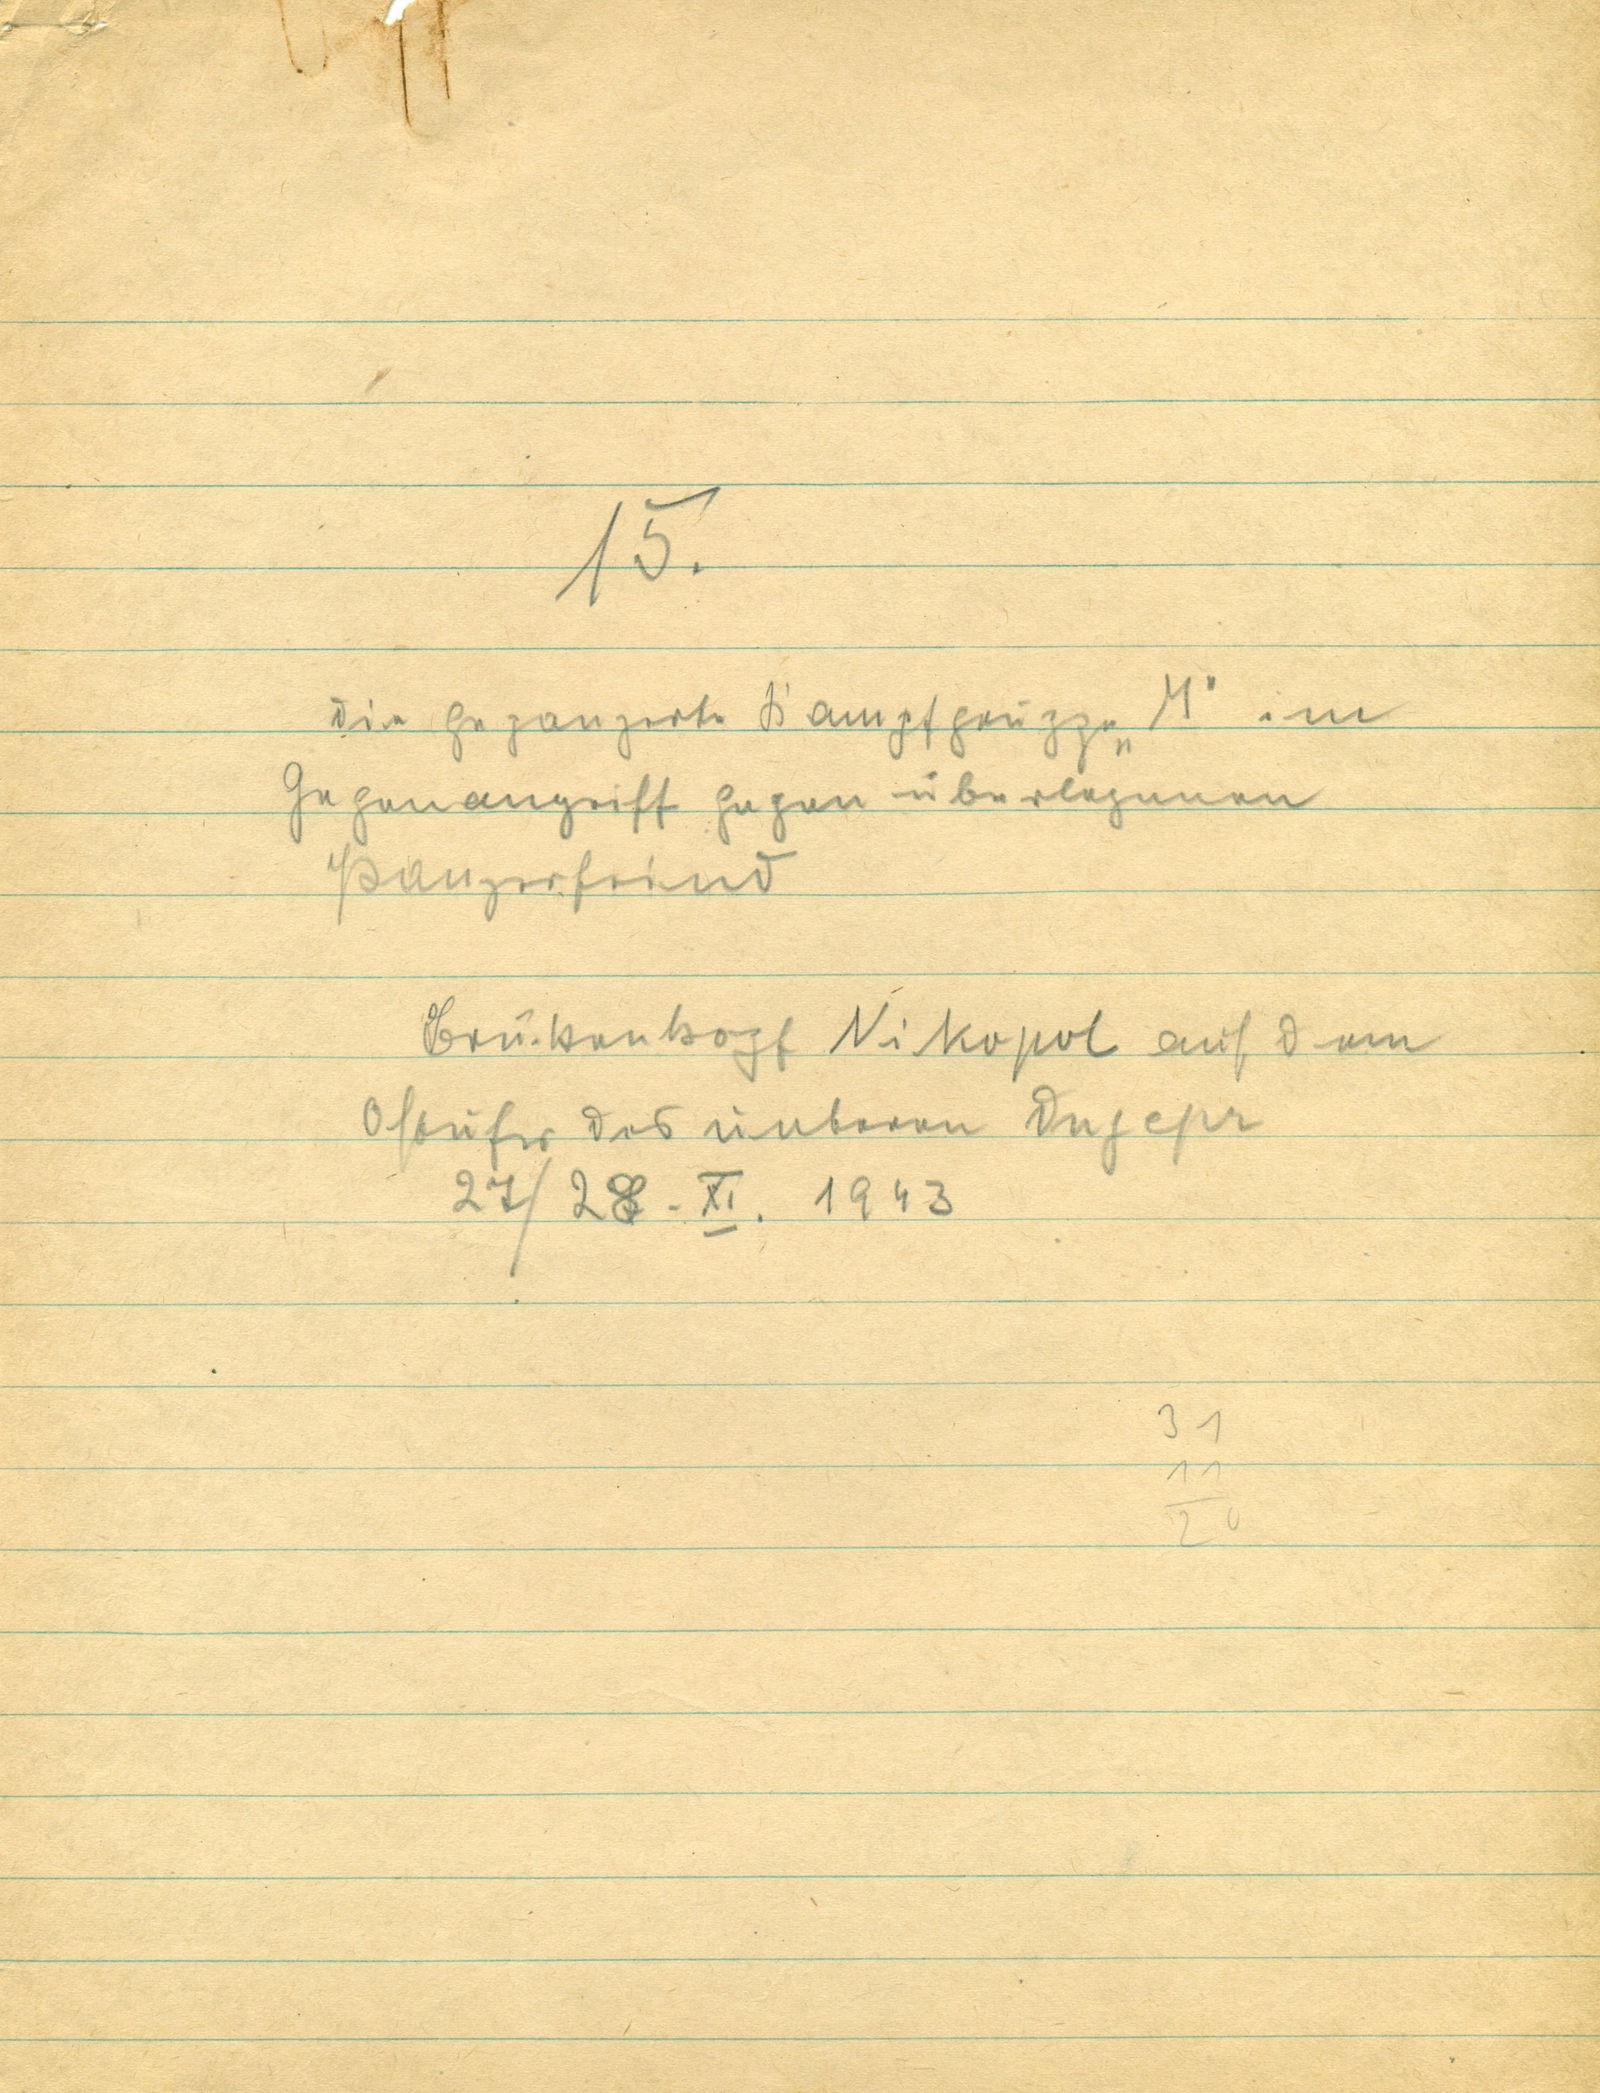 15.
Die gepanzerte Kampfgruppe „M" im
Gegenangriff gegen überlegenen
Panzerfeind
Brückenkopf Nikopol auf dem
Ostufer des unteren Dnjepr
27/28. XI. 1943
31
11
20